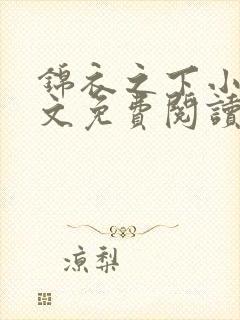 錦衣之下小
文免費閱讀
涼梨